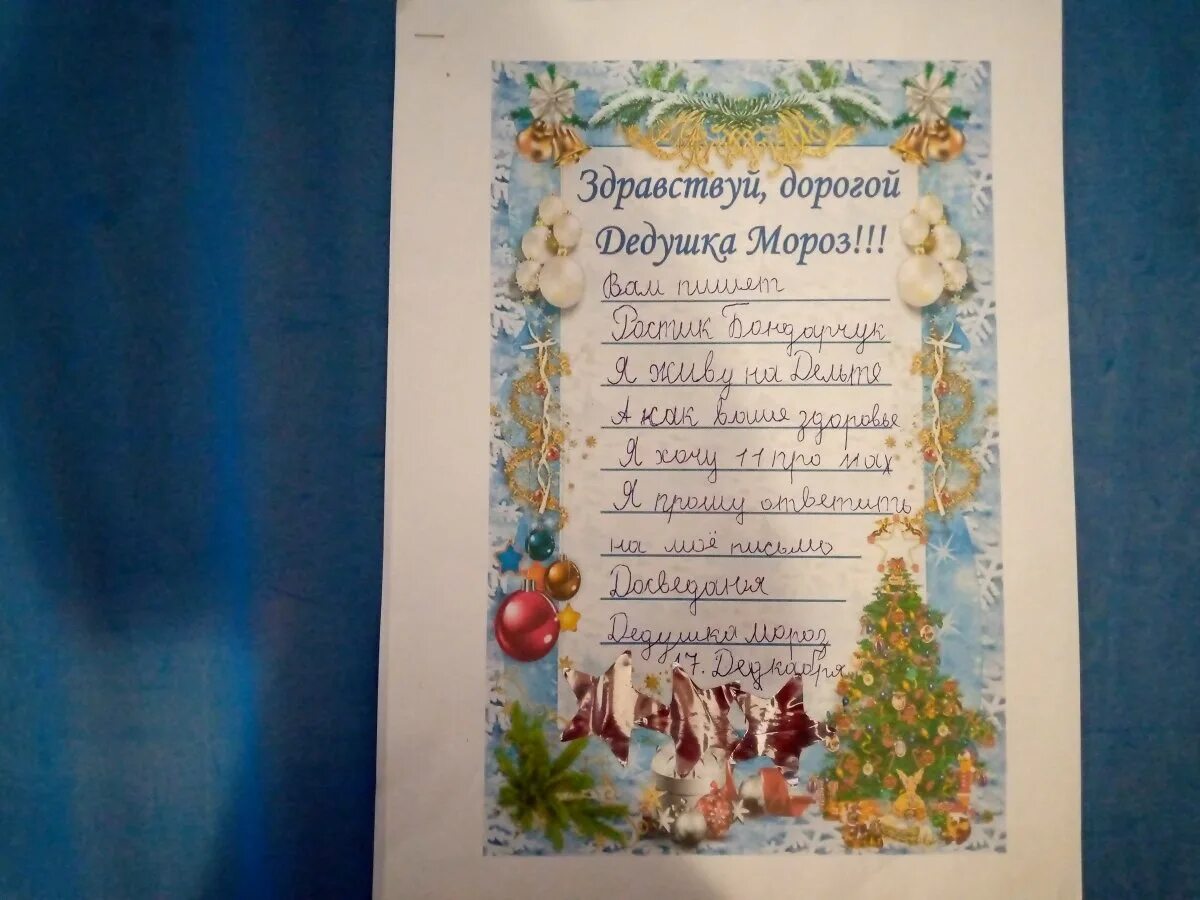 Здравствуй, дорогой
Дедушка Мороз!!!
Вам пишет
Ростик Бондарчук
Я живу на Дельте
А как ваше здоровье
Я хочу 11 про мах
Я прошу ответить
на моё письмо
Досведания
Дедушка мороз
17. Дедкабря